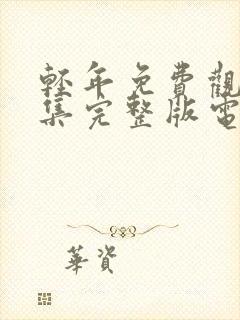 輕年免費觀
集完整版電
華資